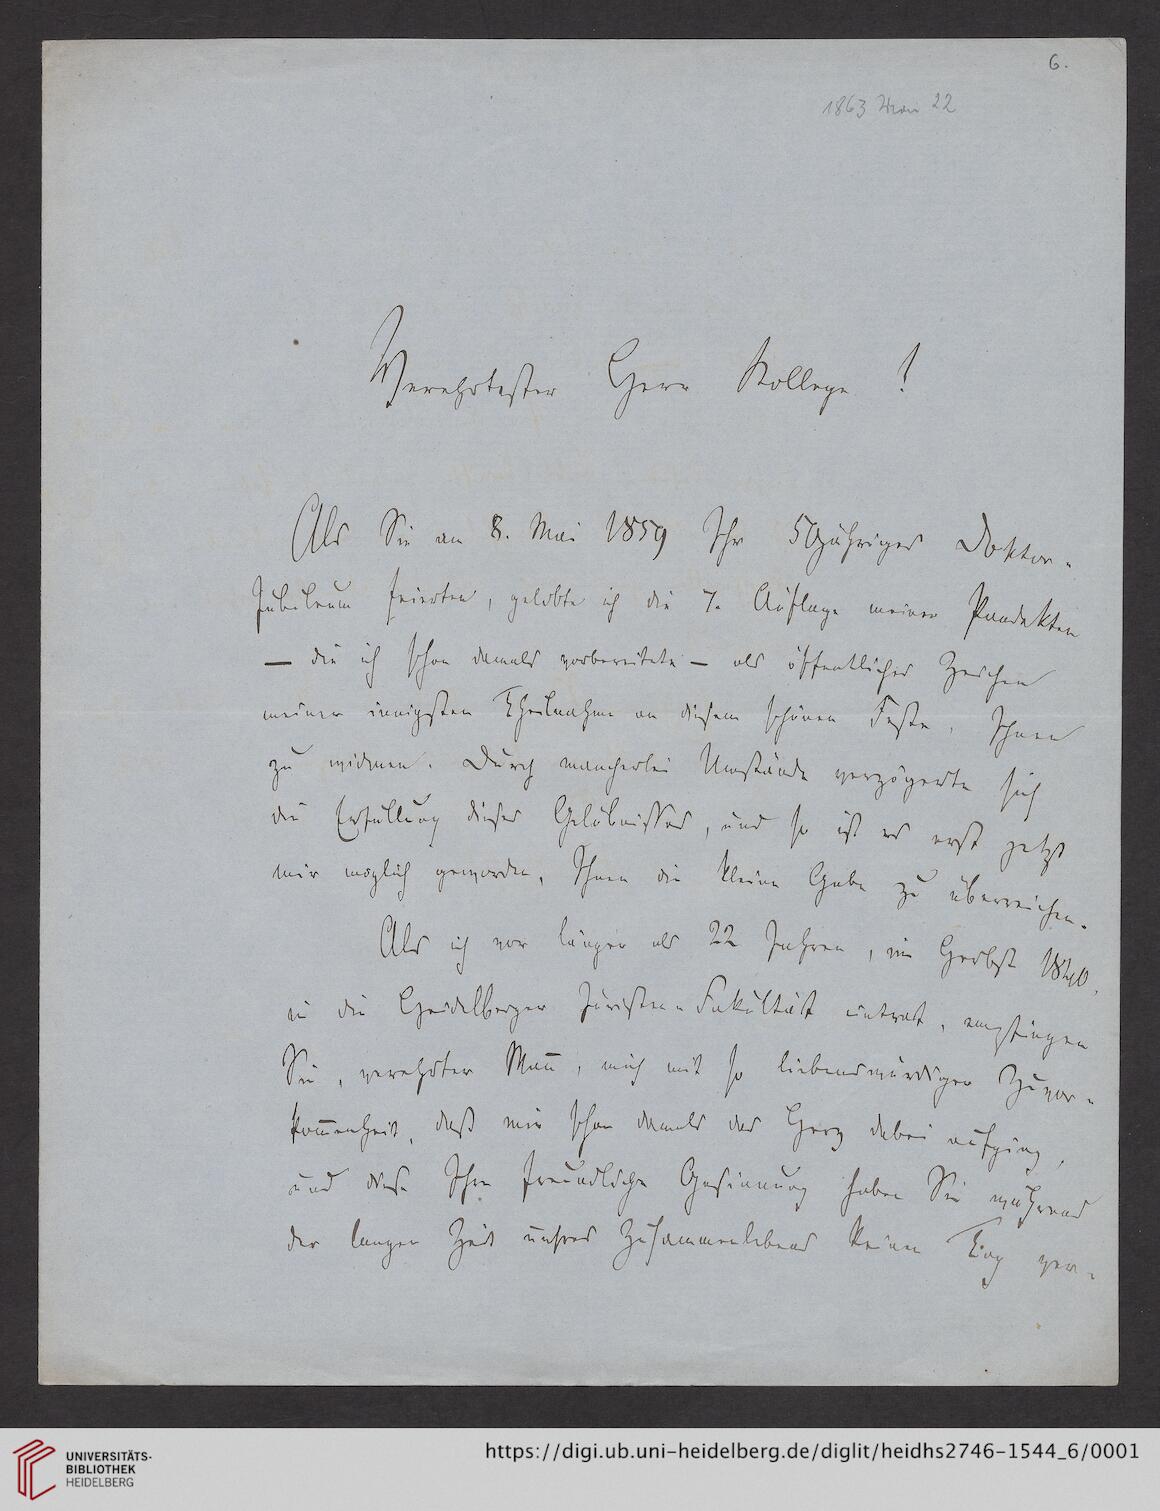 6.
1863 22
Verehrtester Herr Kollege !
Als Sie am 8. Mai 1859 Ihr 50jähriges Doktor-
Jubileum feierten, gelobte ich die 7. Auflage meiner Pandekten
— die ich schon damals vorbereitete — als öffentliches Zeichen
meiner innigsten Theilnahme an diesem schönen Feste, Ihnen
zu widmen. Durch mancherlei Umstände verzögerte sich
die Erfüllung dieses Gelübnisses, und so ist es erst jetzt
mir möglich geworden, Ihnen die kleine Gabe zu überreichen.
Als ich vor länger als 22 Jahren, im Herbst 1840,
in die Heidelberger Juristen-Fakultät eintrat, empfingen
Sie, verehrter Mann̅, mich mit so liebenswürdiger Zuvor-
kom̅enheit, daß mir schon damals das Herz dabei aufging,
und diese Ihre freundliche Gesinnung haben Sie während
der langen Zeit unsres Zusammenlebens keinen Tag ver-
UNIVERSITÄTS-
BIBLIOTHEK
HEIDELBERG
https://digi.ub.uni-heidelberg.de/diglit/heidhs2746-1544_6/0001